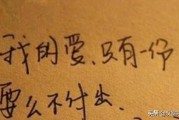 我的爱,只有一份
要么不付出,